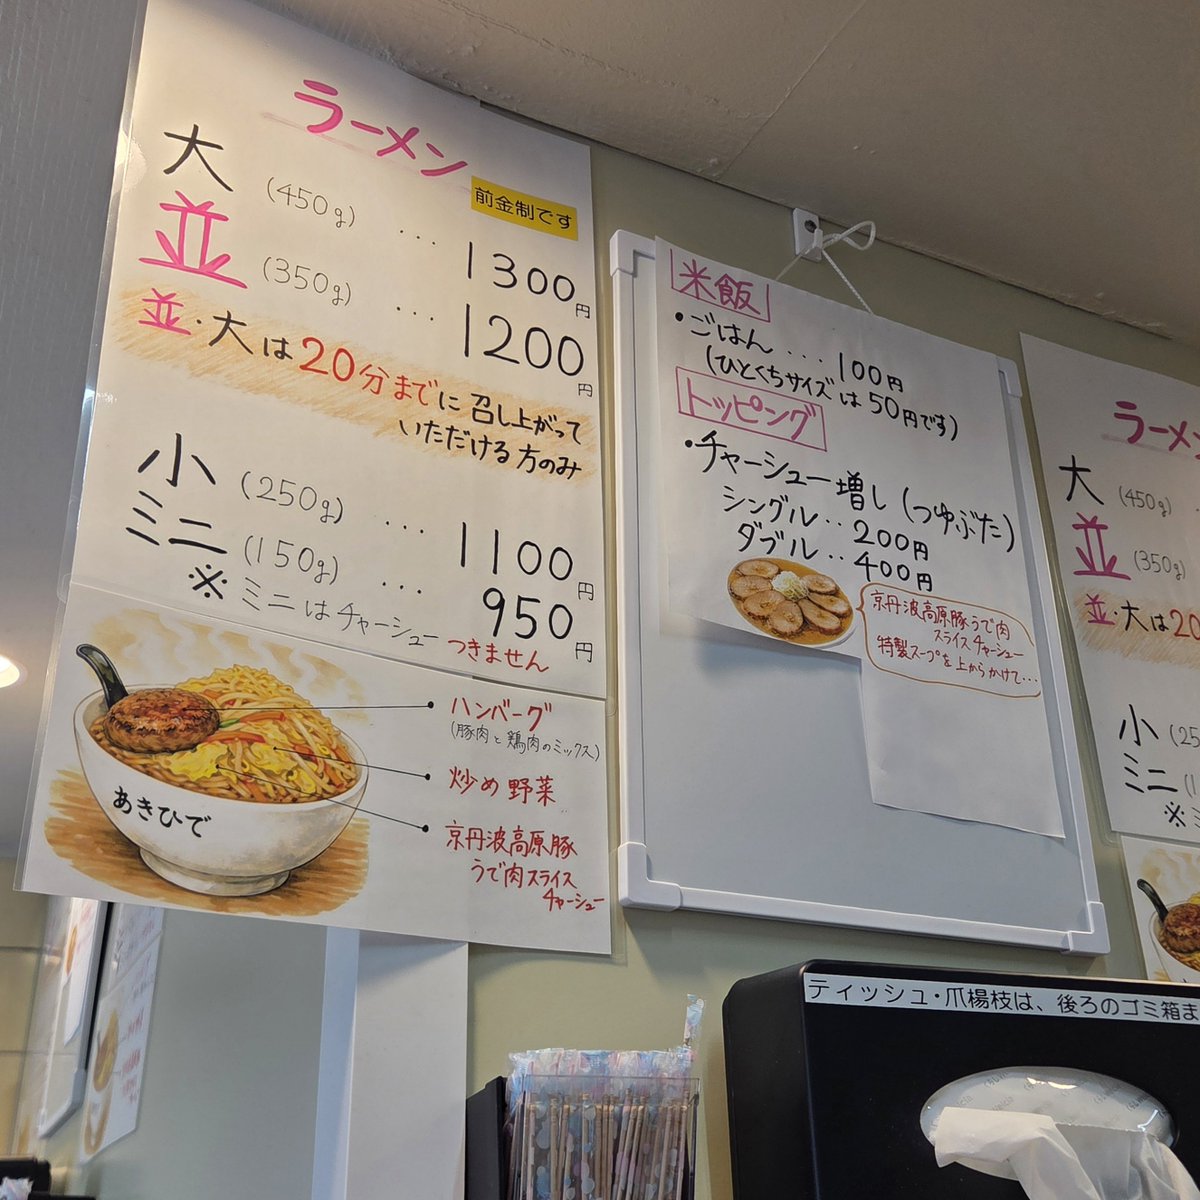 ラーメン
前金制です
大 (450g) ... 1300円
並 (350g) ... 1200円
並・大は20分までに召し上がって
いただける方のみ
小 (250g) ... 1100円
ミニ (150g) ... 950円
※ミニはチャーシューつきません
ハンバーグ
(豚肉と鶏肉のミックス)
炒め野菜
京丹波高原豚
うで肉スライス
チャーシュー
あきひで
米飯
・ごはん ... 100円
(ひとくちサイズは50円です)
トッピング
・チャーシュー増し(つゆぶた)
シングル‥200円
ダブル‥400円
京丹波高原豚うで肉
スライスチャーシュー
特製スープを上からかけて…
ラーメ
大 (450g)
並 (350g)
並・大は20
小 (25
ミニ (1
※ミ
ティッシュ・爪楊枝は、後ろのゴミ箱ま